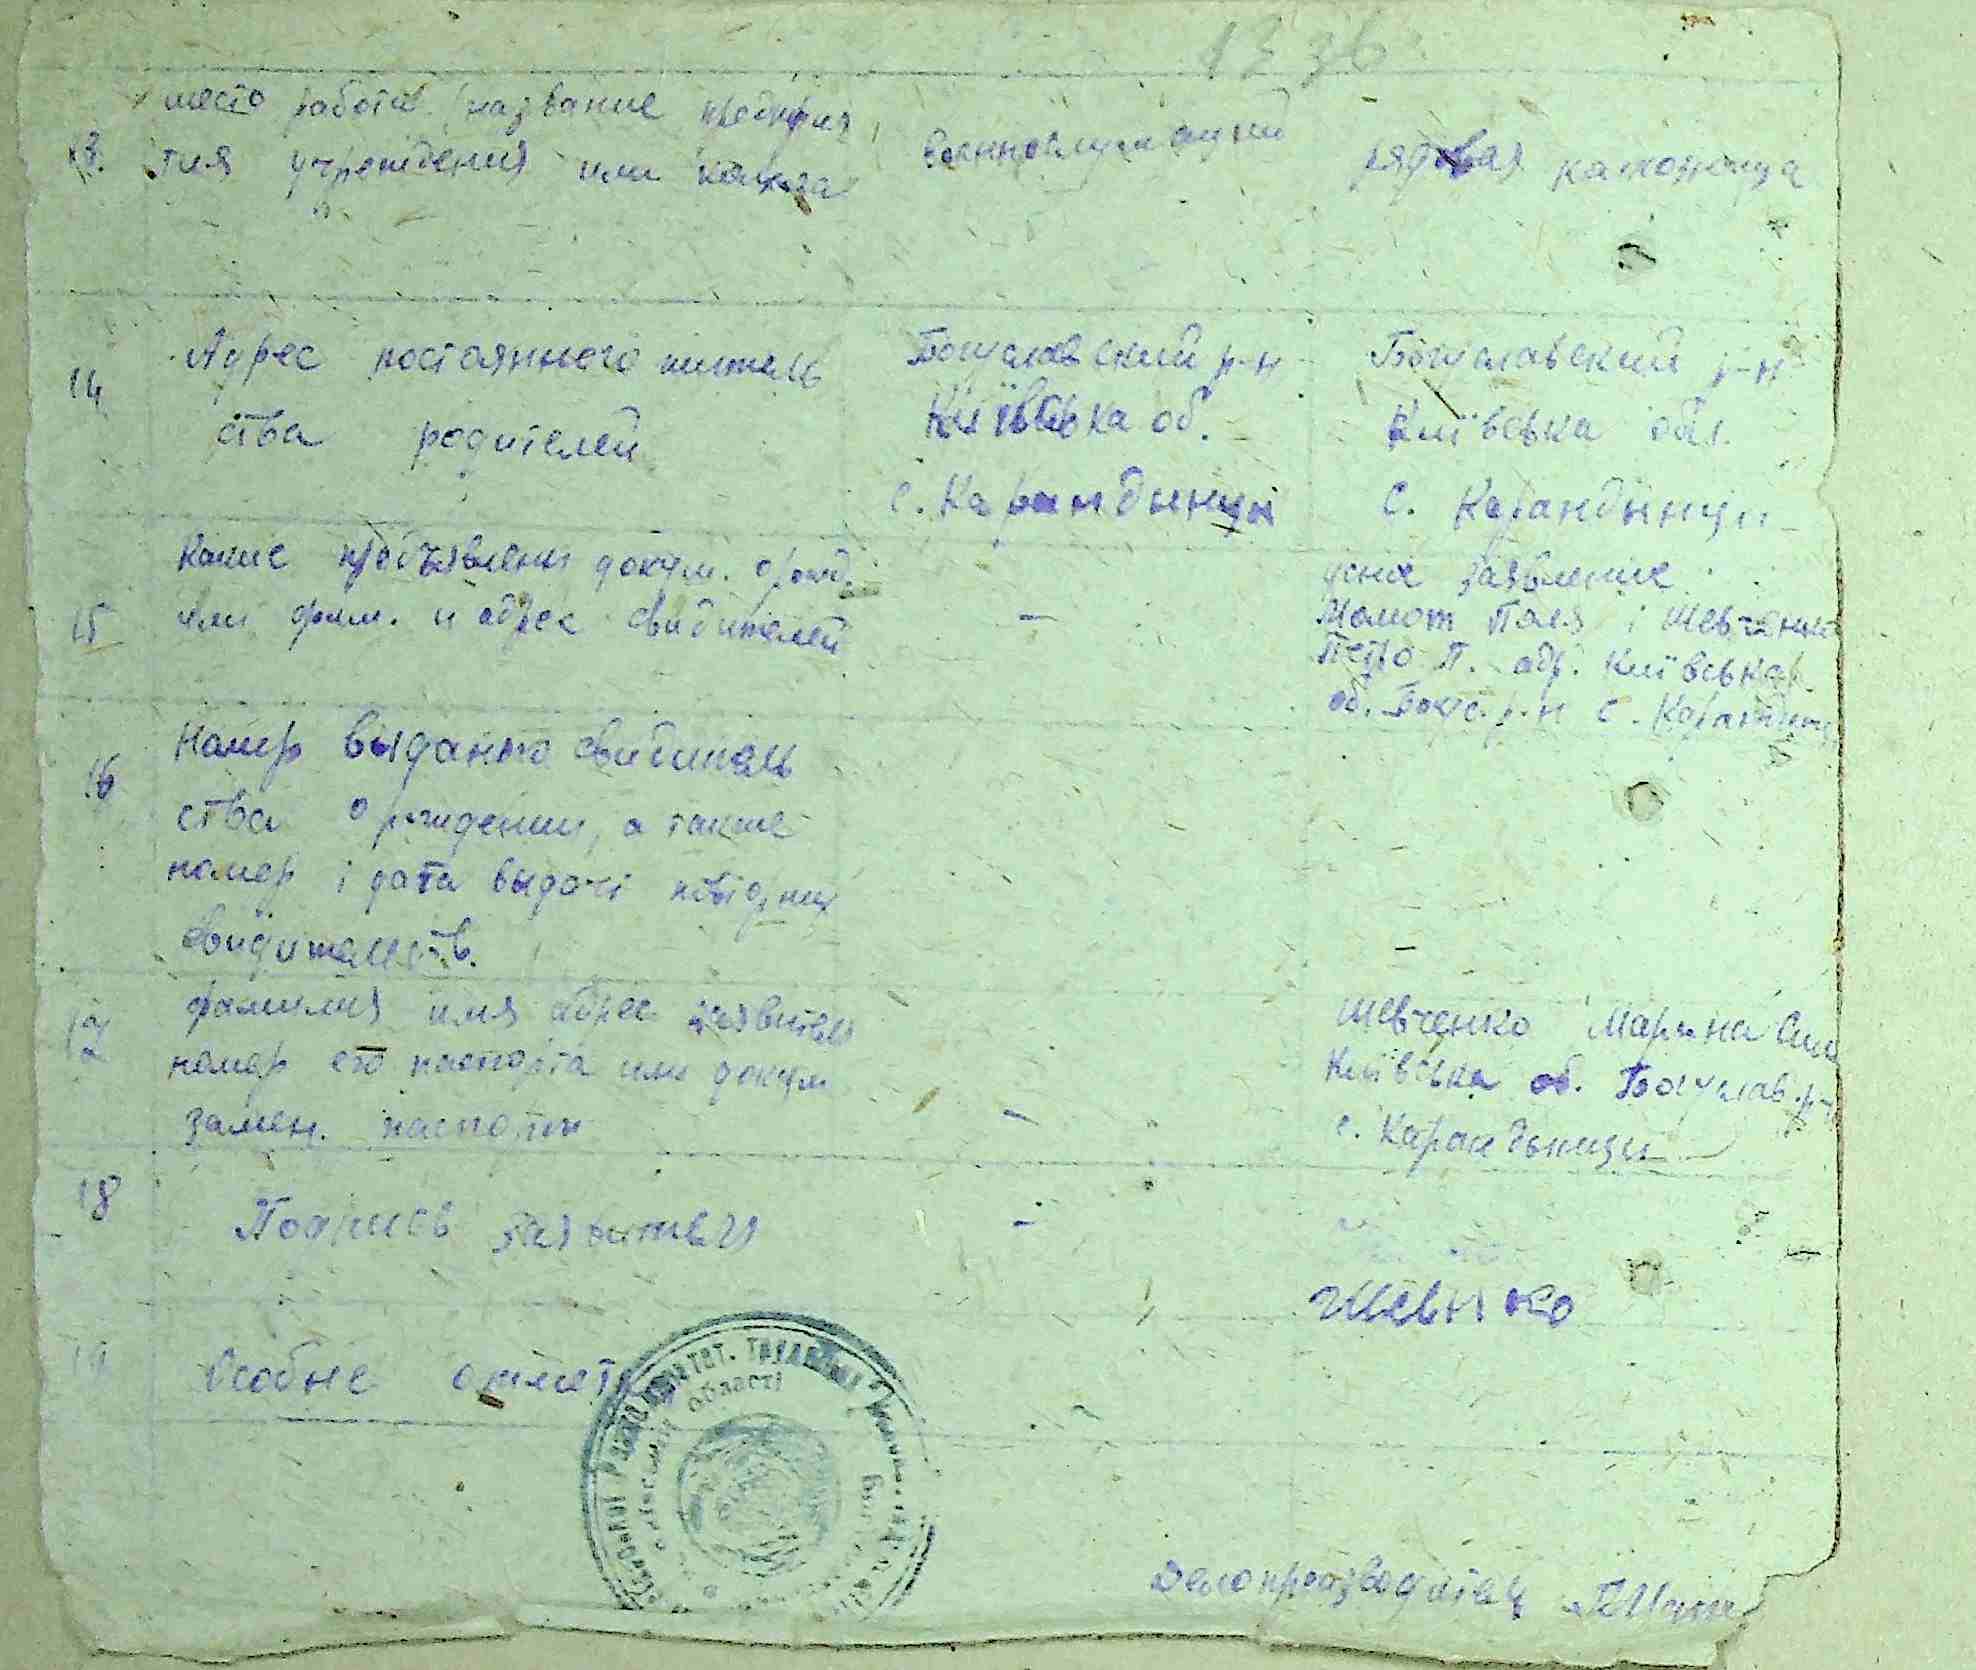 13 36
13. место работы (название предприя
тия учреждения или колхоза
военнослужащий
рядовая колхозница
14 Адрес постоянного житель
ства родителей
Богуславский р-н
Київська об.
с. Карандинци
Богуславский р-н
Київська обл.
с. Карандинци
15 Какие предъявлены докум. о рожд.
или фам. и адрес свидителей
—
усне заявление
Момот Поля і Шевченко
Петро П. адр. Київська
об. Богус. р-н с. Карандинц
16 Номер выданно свидитель
ства о рождении, а также
номер і дата выдачі
свидительств.
–
17 фамилия имя адрес заявителя
номер его паспорта или докум
замен. паспорта
–
Шевченко Марина
Київська об. Богуслав. р-н
с. Карандинци
18 Подпись заявителя
–
Шевчнко
19 Особые отметки
Делопроизводитель